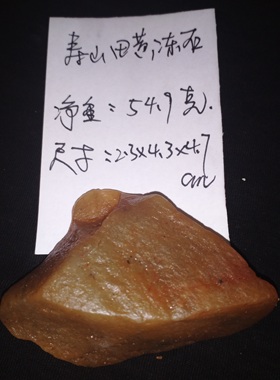 寿山田黄冻石
净重=54.9克.
尺寸=2.3x4.3x4.7
cm